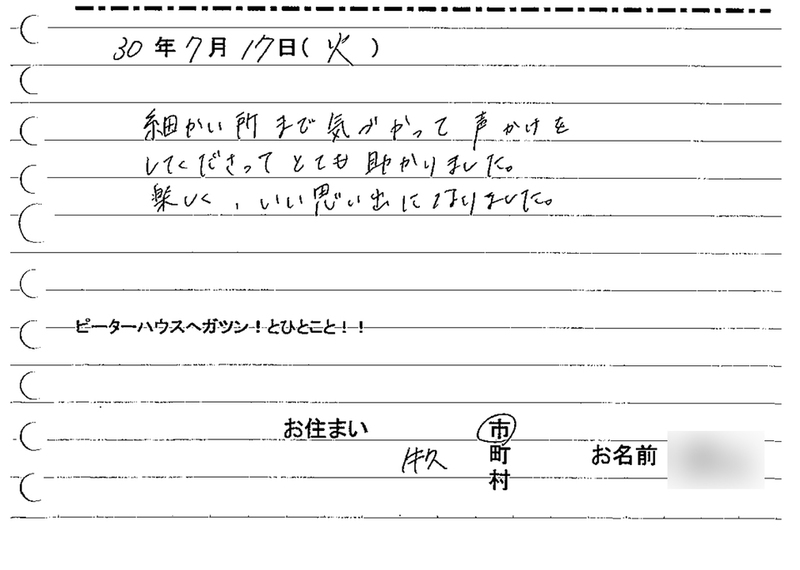 30年7月17日(火)
細かい所まで気づかって声かけを
してくださってとても助かりました。
楽しく、いい思い出になりました。
ピーターハウスへガツン!とひとこと!!
お住まい
牛久
市
町
村
お名前